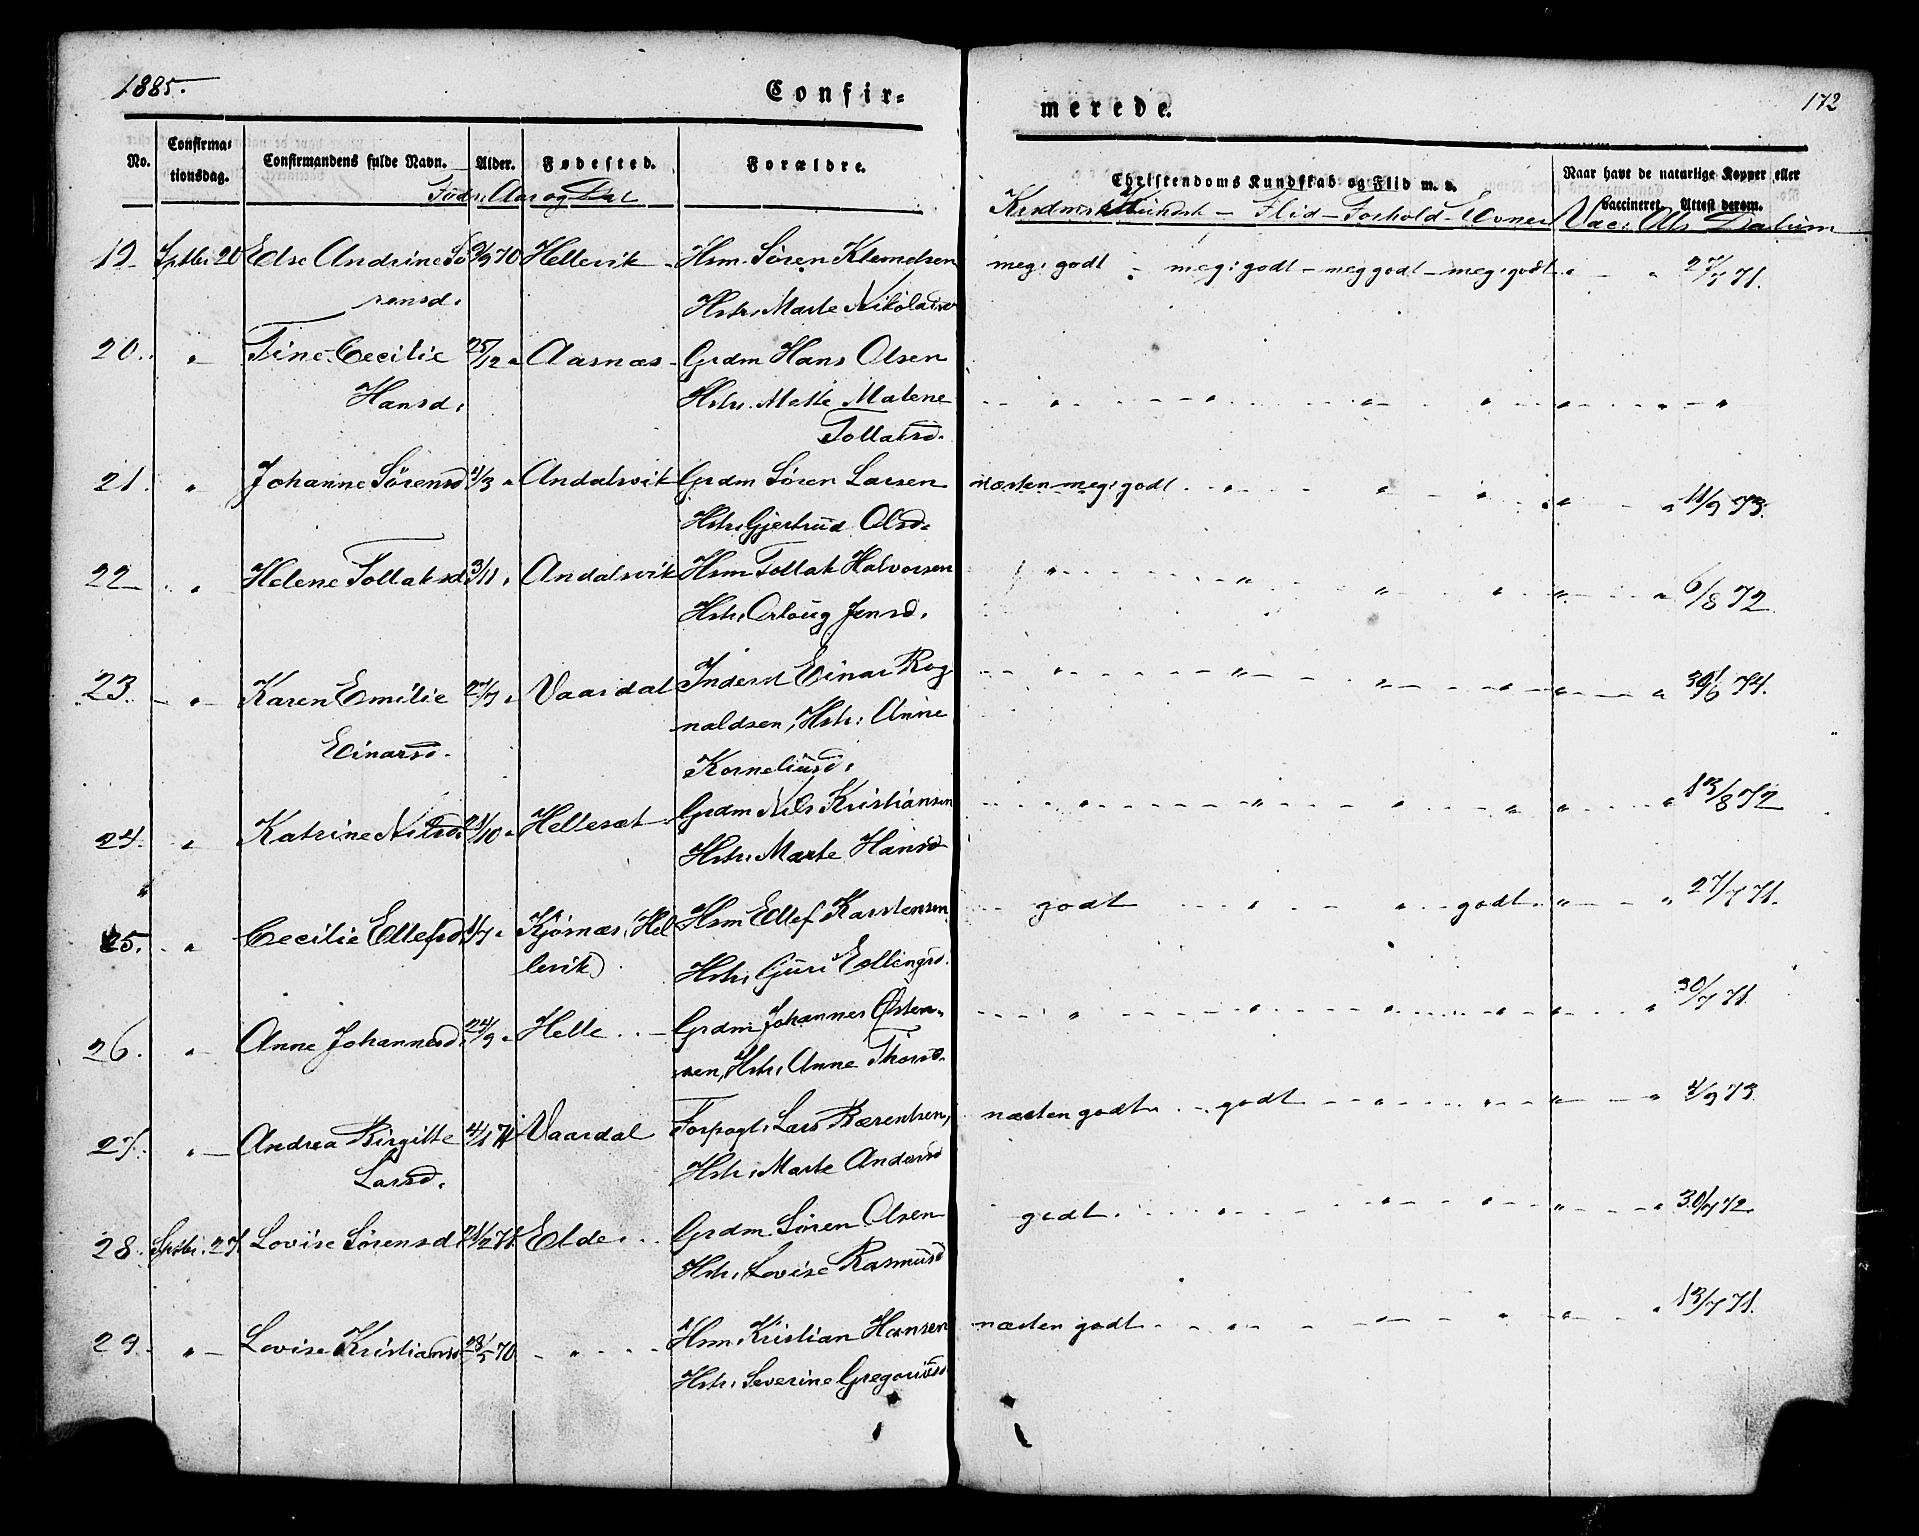 1885.
Confir-
merede.
172
No.
Confirma-
tionsdag.
Confirmandens fulde Navn.
Alder.
Fødested.
Forældre.
Christendoms Kundskab og Flid m. v.
Naar havt de naturlige Kopper eller
vaccineret. Attest derom.
Føds: Aar og Dat
Krdms Kundsk - Flid - Forhold - Evner Vac: Att: Datum
19 Sptbr 20 Else Andrine Sö 3/9 70 Hellevik - Hsm. Søren Klemetsen meg: godt - meg: godt - meg godt - meg: godt " - " 27/7 71.
rensd. Hstr: Marte Nikolaisd
20. " Tine Cecilie 25/12 " Aasnæs - Grdm Hans Olsen
Hansd. Hstr. Mette Malene " " " " " " "
Tollaksd.
21. " Johanne Sørensd 4/3 " Andalsvik Grdm Søren Larsen næsten meg: godt " " " " " 11/9 73.
Hstr: Gjertrud Olsd.
22 " Helene Tollaksd 3/11 " Andalsvik Hsm Tollak Halvorsen " " " " " " 6/8 72
Hstr: Jensd.
23. " Karen Emilie 27/7 " Vaardal Inderst Einar Rog " " " " " " 30/6 74.
naldsen, Hstr: Anne
Einarsd. Korneliusd.
24. " Katrine Nilsd. 21/10 " Hellesæt Grdm Nils Kristiansen " " " " " " 13/8 72
Hstr: Marte Hansd
25. " Cecilie Ellefsd 1/7 " Kjørnæs, (Hel Hsm Ellef Karstensen godt " " godt " " 27/7 71.
levik) Hstr: Guri Erlingsd.
26. " Anne Johannesd. 24/9 " Helle Grdm Johannes Østen- " " " " " " 30/7 71
sen, Hstr: Anne Thorsd.
27. " Andrea Birgitte 4/1 71 Vaardal Forpagt. Lars Bærentsen, næsten godt - godt " " " " 4/9 73
Larsd. Hstr: Marte Andersd
28. Sptbr. 27. Lovise Sørensd 21/2 71. Elde Grdm. Søren Olsen godt " " " " " 30/7 72.
Hstr: Lovise Rasmusd
29. " Lovise Kristiansd 28/5 70 " Hsm Kristian Hansen næsten godt " " " " " 13/7 71.
Hstr: Severine Gregoriusd